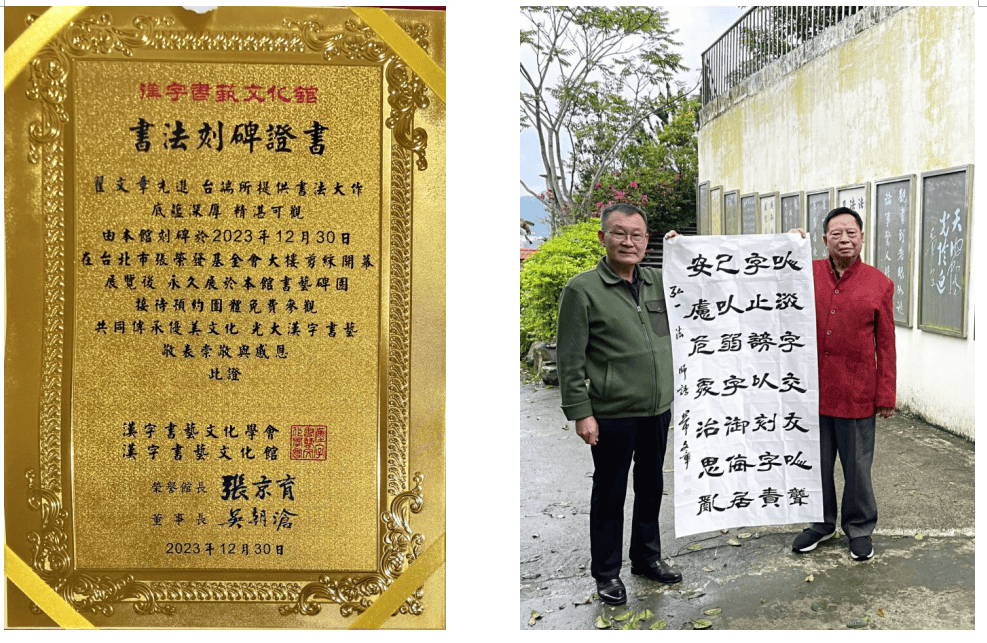 漢字書藝文化館
書法刻碑證書
瞿文章先進 台端所提供書法大作
底蘊深厚 精湛可觀
由本館刻碑於2023年12月30日
在台北市張榮發基金會大樓剪綵開幕
展覽後 永久展於本館書藝碑園
接待預約團體免費參觀
共同傳承優美文化 光大漢字書藝
敬表崇敬與感恩
此證
漢字書藝文化學會
漢字書藝文化館
榮譽館長 張京育
董事長 吳朝滄
2023年12月30日
以淡字交友以聾
字止謗以刻字責
己以弱字御侮居
安慮危處治思亂
弘一法師語 瞿文章
觀書到老眼
論事驚人